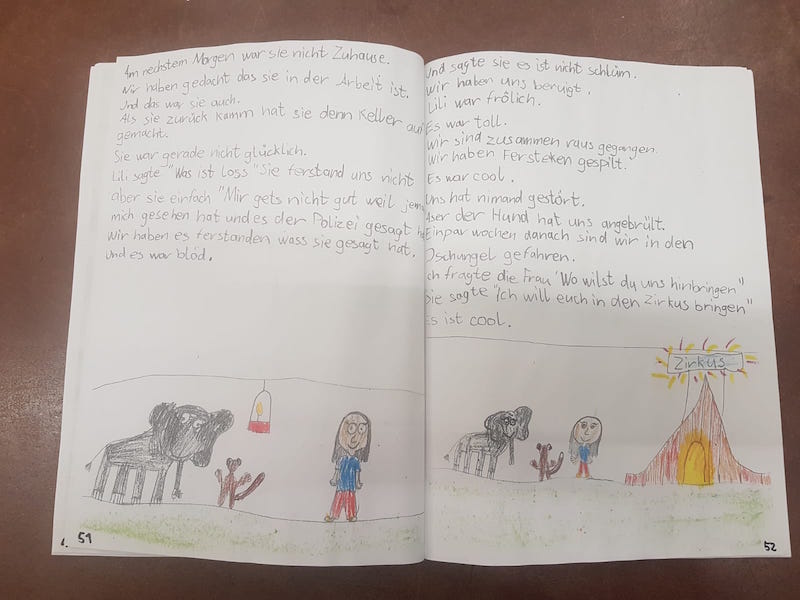 Am nechstem Morgen war sie nicht Zuhause.
Wir haben gedacht das sie in der Arbeit ist.
Und das war sie auch.
Als sie zurück kamm hat sie denn Keller auf
gemacht.
Sie war gerade nicht glücklich.
Lili sagte "Was ist loss" Sie ferstand uns nicht
aber sie einfach "Mir gets nicht gut weil jem
mich gesehen hat und es der Polizei gesagt h
Wir haben es ferstanden wass sie gesagt hat.
und es war blöd.
51
Und sagte sie es ist nicht schlüm.
Wir haben uns berugt.
Lili war frölich.
Es war toll.
Wir sind zusammen raus gegangen.
Wir haben Fersteken gespilt.
Es war cool.
Uns hat nimand gestört.
Aser der Hund hat uns angebrült.
Einpar wochen danach sind wir in den
Dschungel gefahren.
Ich fragte die Frau "Wo wilst du uns hinbringen"
Sie sagte "Ich will euch in den Zirkus bringen"
Es ist cool.
Zirkus
52